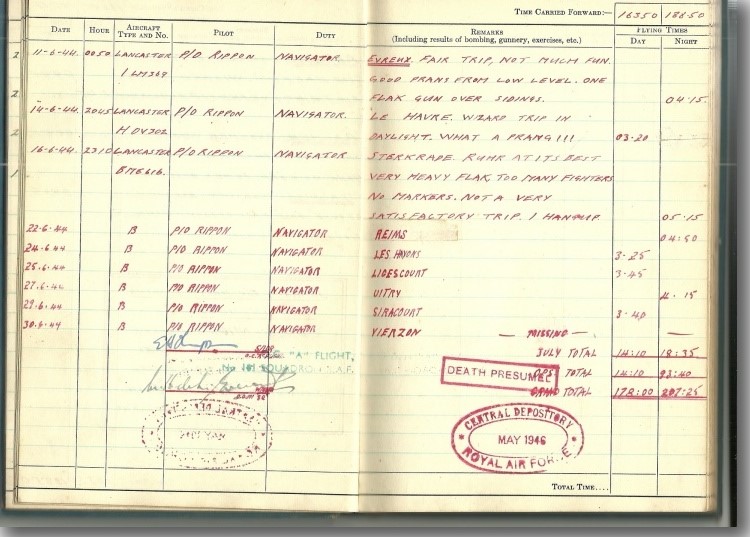 TIME CARRIED FORWARD:— 163 50 186.50
DATE HOUR AIRCRAFT TYPE AND NO. PILOT DUTY REMARKS (Including results of bombing, gunnery, exercises, etc.) FLYING TIMES DAY NIGHT
11-6-44. 0050 LANCASTER P/O RIPPON NAVIGATOR. EVREUX. FAIR TRIP, NOT MUCH FUN.
I LM369 GOOD PRANG FROM LOW LEVEL. ONE
FLAK GUN OVER SIDINGS. 04.15.
14-6-44. 2045 LANCASTER P/O RIPPON NAVIGATOR. LE HAVRE. WIZARD TRIP IN
H DV302 DAYLIGHT. WHAT A PRANG!!! 03-20
16-6-44. 2310 LANCASTER P/O RIPPON NAVIGATOR STERKRADE. RUHR AT ITS BEST
B ME616. VERY HEAVY FLAK, TOO MANY FIGHTERS
NO MARKERS. NOT A VERY
SATISFACTORY TRIP. 05.15
22-6-44 B P/O RIPPON NAVIGATOR REIMS
24-6-44 B P/O RIPPON NAVIGATOR LES HAYONS 3-25
25-6-44 B P/O RIPPON NAVIGATOR LIDESCOURT 3-45
27-6-44 B P/O RIPPON NAVIGATOR VITRY 4.15
29-6-44 B P/O RIPPON NAVIGATOR SIRACOURT 3-40
30-6-44 B P/O RIPPON NAVIGATOR VIERZON — MISSING — —
JULY TOTAL 14:10 18:35
"A" FLIGHT,
No 101 SQUADRON R.A.F.
OPS TOTAL 14:10 93:40
DEATH PRESUMED
GRAND TOTAL 178:00 207:25
CENTRAL DEPOSITORY
MAY 1946
ROYAL AIR FORCE
TOTAL TIME....